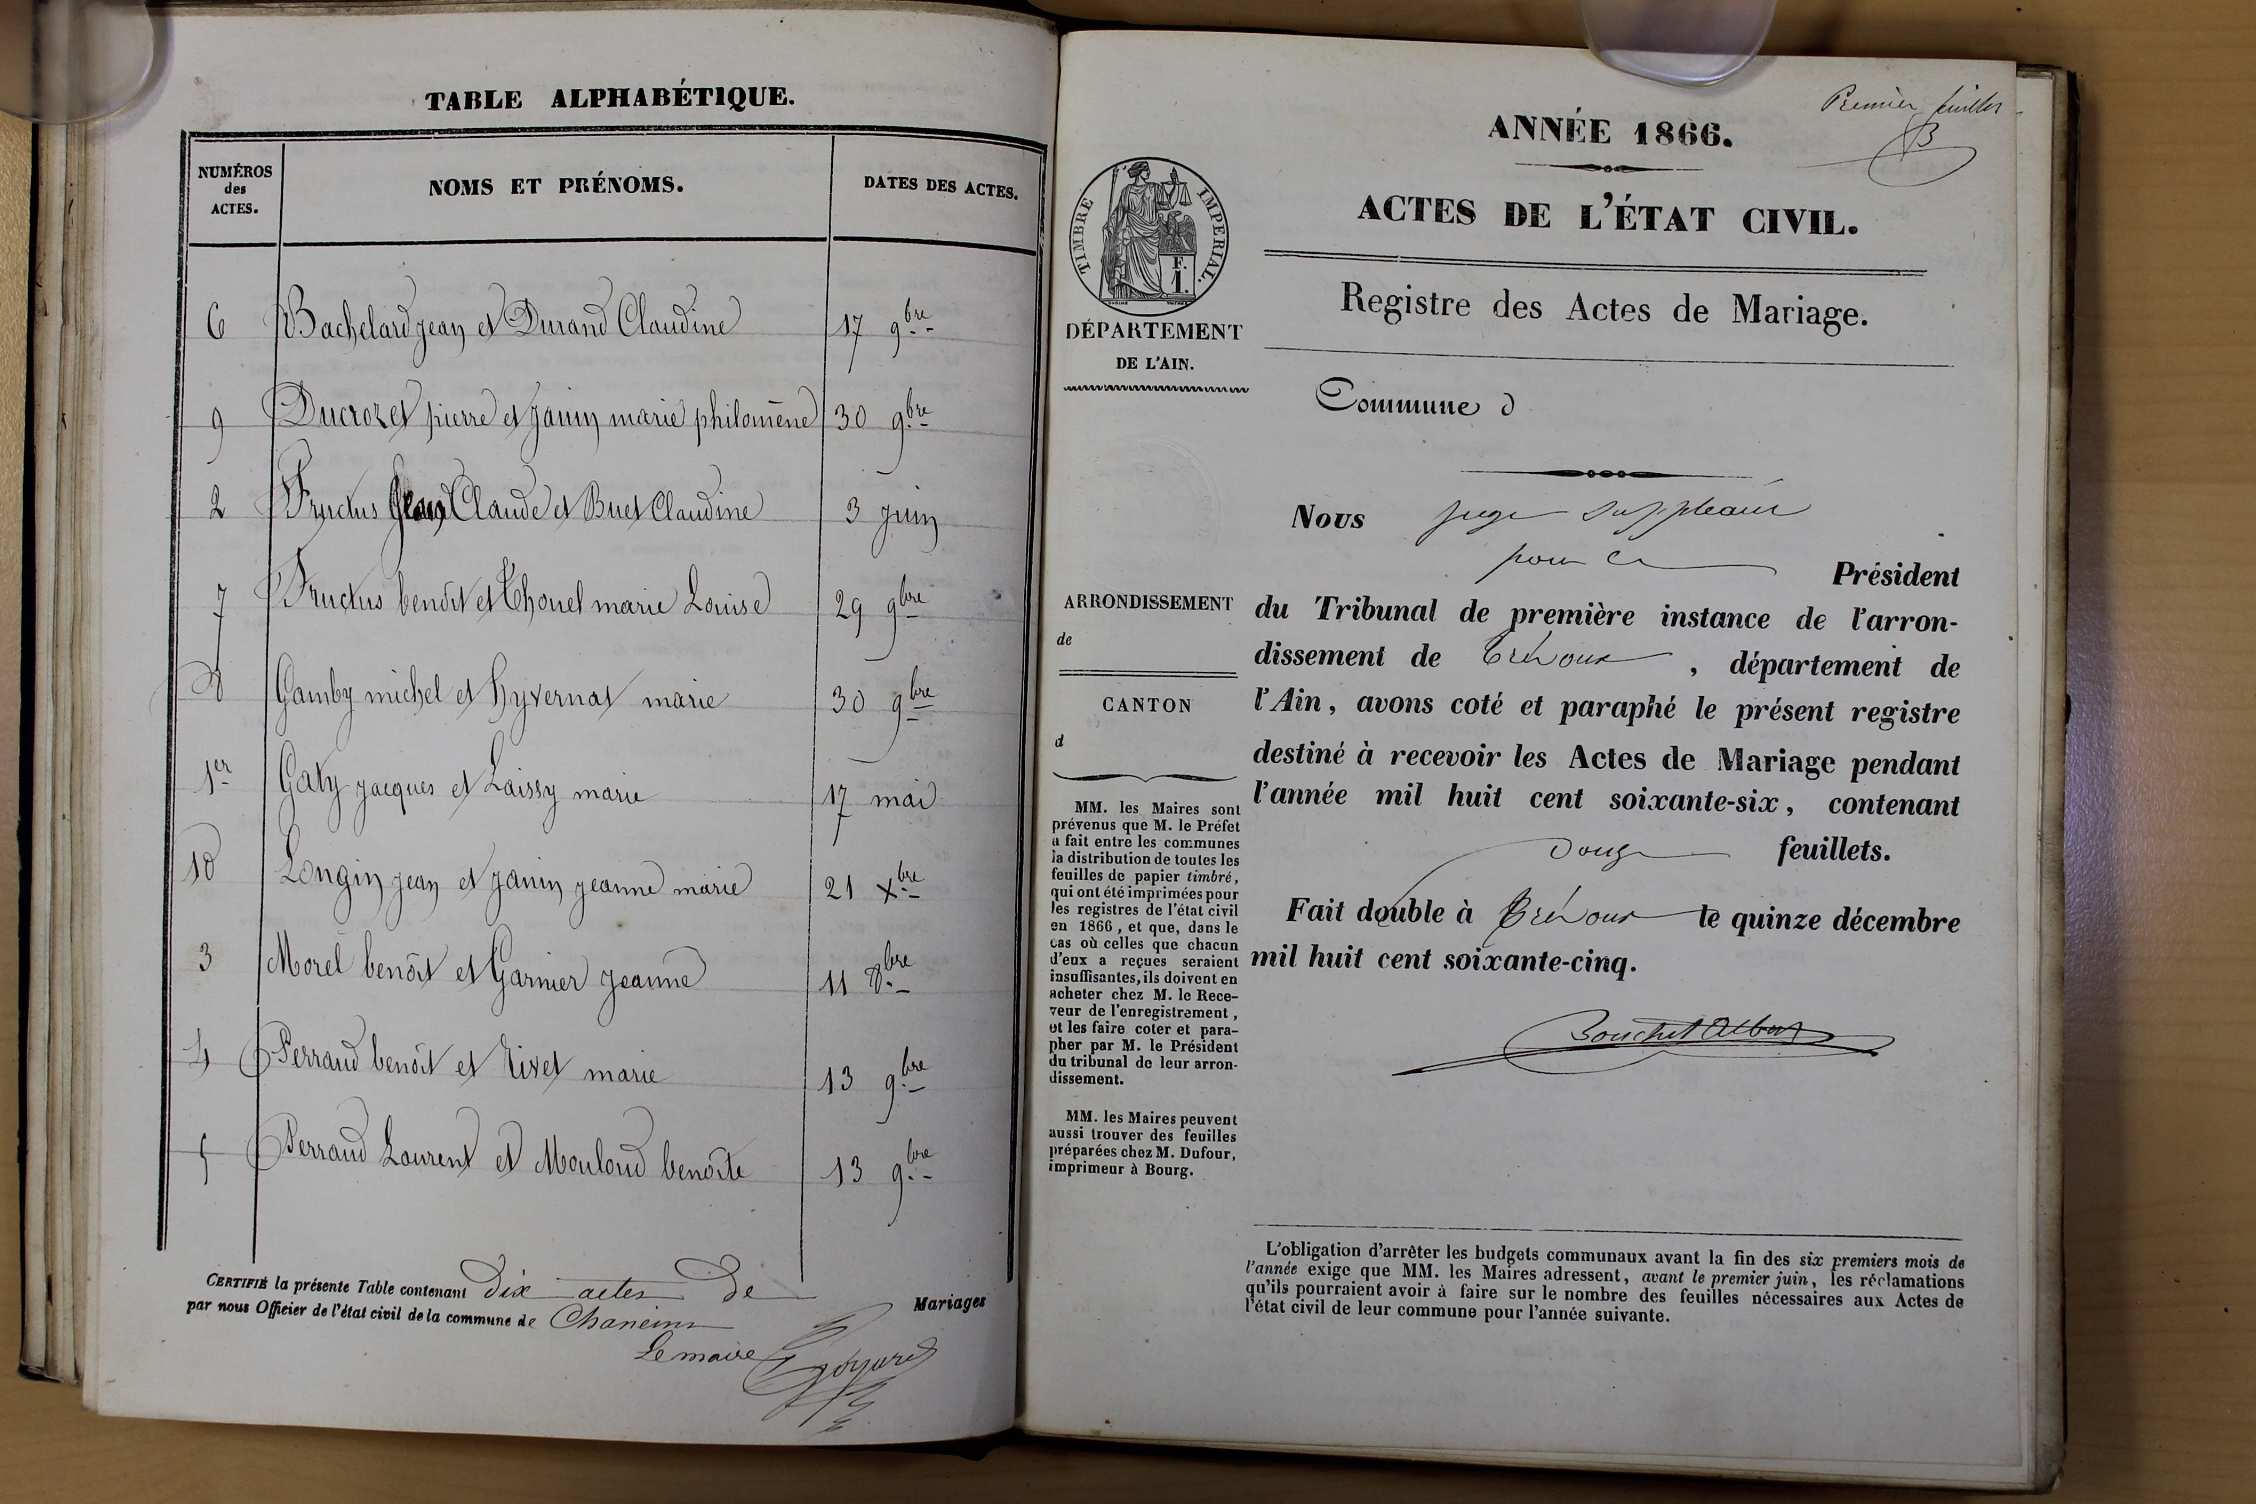 TABLE ALPHABÉTIQUE.
NUMÉROS des ACTES.
NOMS ET PRÉNOMS.
DATES DES ACTES.
6 Bachelard jean et Durand Claudine 17 9bre
9 Ducrozet pierre et janin marie philomène 30 9bre
2 Fructus Claude et Buet Claudine 3 juin
7 Fructus benoît et Thouel marie Louise 29 9bre
8 Gamby michel et hyvernat marie 30 9bre
1er Gaty jacques et Laissy marie 17 mai
10 Longin jean et janin jeanne marie 21 Xbre
3 Morel benoît et Garnier jeanne 11 8bre
4 Perraud benoît et Rivet marie 13 9bre
5 Perraud Laurent et Mouloud benoîte 13 9bre
CERTIFIÉ la présente Table contenant dix actes de Mariages
par nous Officier de l'état civil de la commune de Chaneins
Le maire
Premier feuillet
B
ANNÉE 1866.
ACTES DE L'ÉTAT CIVIL.
Registre des Actes de Mariage.
TIMBRE IMPERIAL.
F.
1.
DÉPARTEMENT
DE L'AIN.
Commune d
Nous juge suppléant
pour le Président
du Tribunal de première instance de l'arron-
dissement de Trévoux , département de
l'Ain, avons coté et paraphé le présent registre
destiné à recevoir les Actes de Mariage pendant
l'année mil huit cent soixante-six, contenant
douze feuillets.
Fait double à Trévoux le quinze décembre
mil huit cent soixante-cinq.
ARRONDISSEMENT
de
CANTON
d
MM. les Maires sont
prévenus que M. le Préfet
a fait entre les communes
la distribution de toutes les
feuilles de papier timbré,
qui ont été imprimées pour
les registres de l'état civil
en 1866, et que, dans le
cas où celles que chacun
d'eux a reçues seraient
insuffisantes, ils doivent en
acheter chez M. le Rece-
veur de l'enregistrement,
et les faire coter et para-
pher par M. le Président
du tribunal de leur arron-
dissement.
MM. les Maires peuvent
aussi trouver des feuilles
préparées chez M. Dufour,
imprimeur à Bourg.
L'obligation d'arrêter les budgets communaux avant la fin des six premiers mois de
l'année exige que MM. les Maires adressent, avant le premier juin, les réclamations
qu'ils pourraient avoir à faire sur le nombre des feuilles nécessaires aux Actes de
l'état civil de leur commune pour l'année suivante.